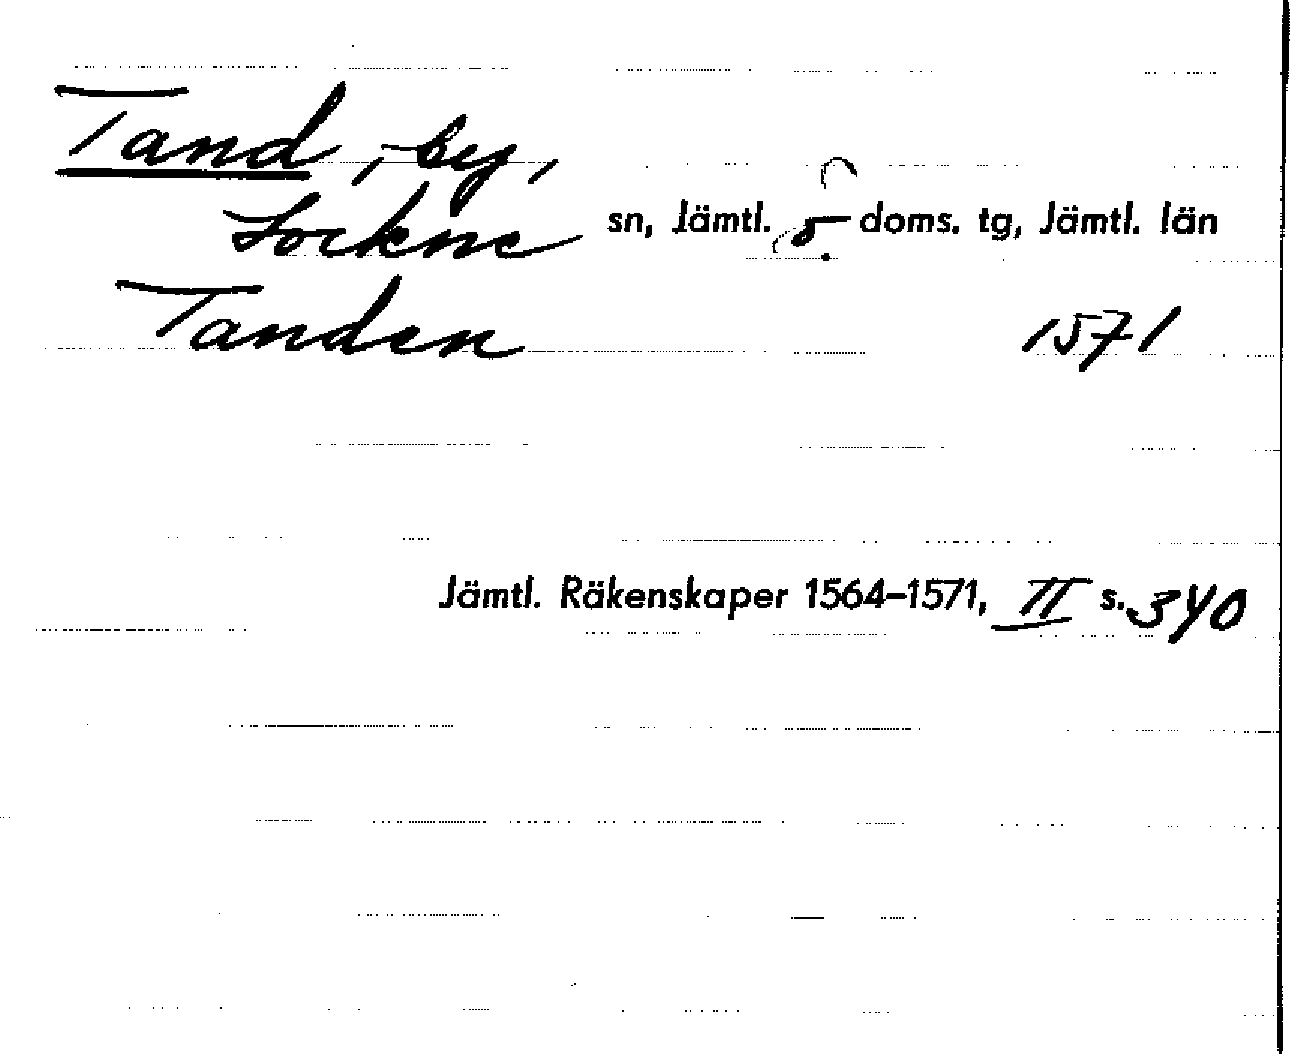 Tand, by,
Lockne sn, Jämtl. ö. doms. tg, Jämtl. län
Tanden 1571
Jämtl. Räkenskaper 1564–1571, II s. 340